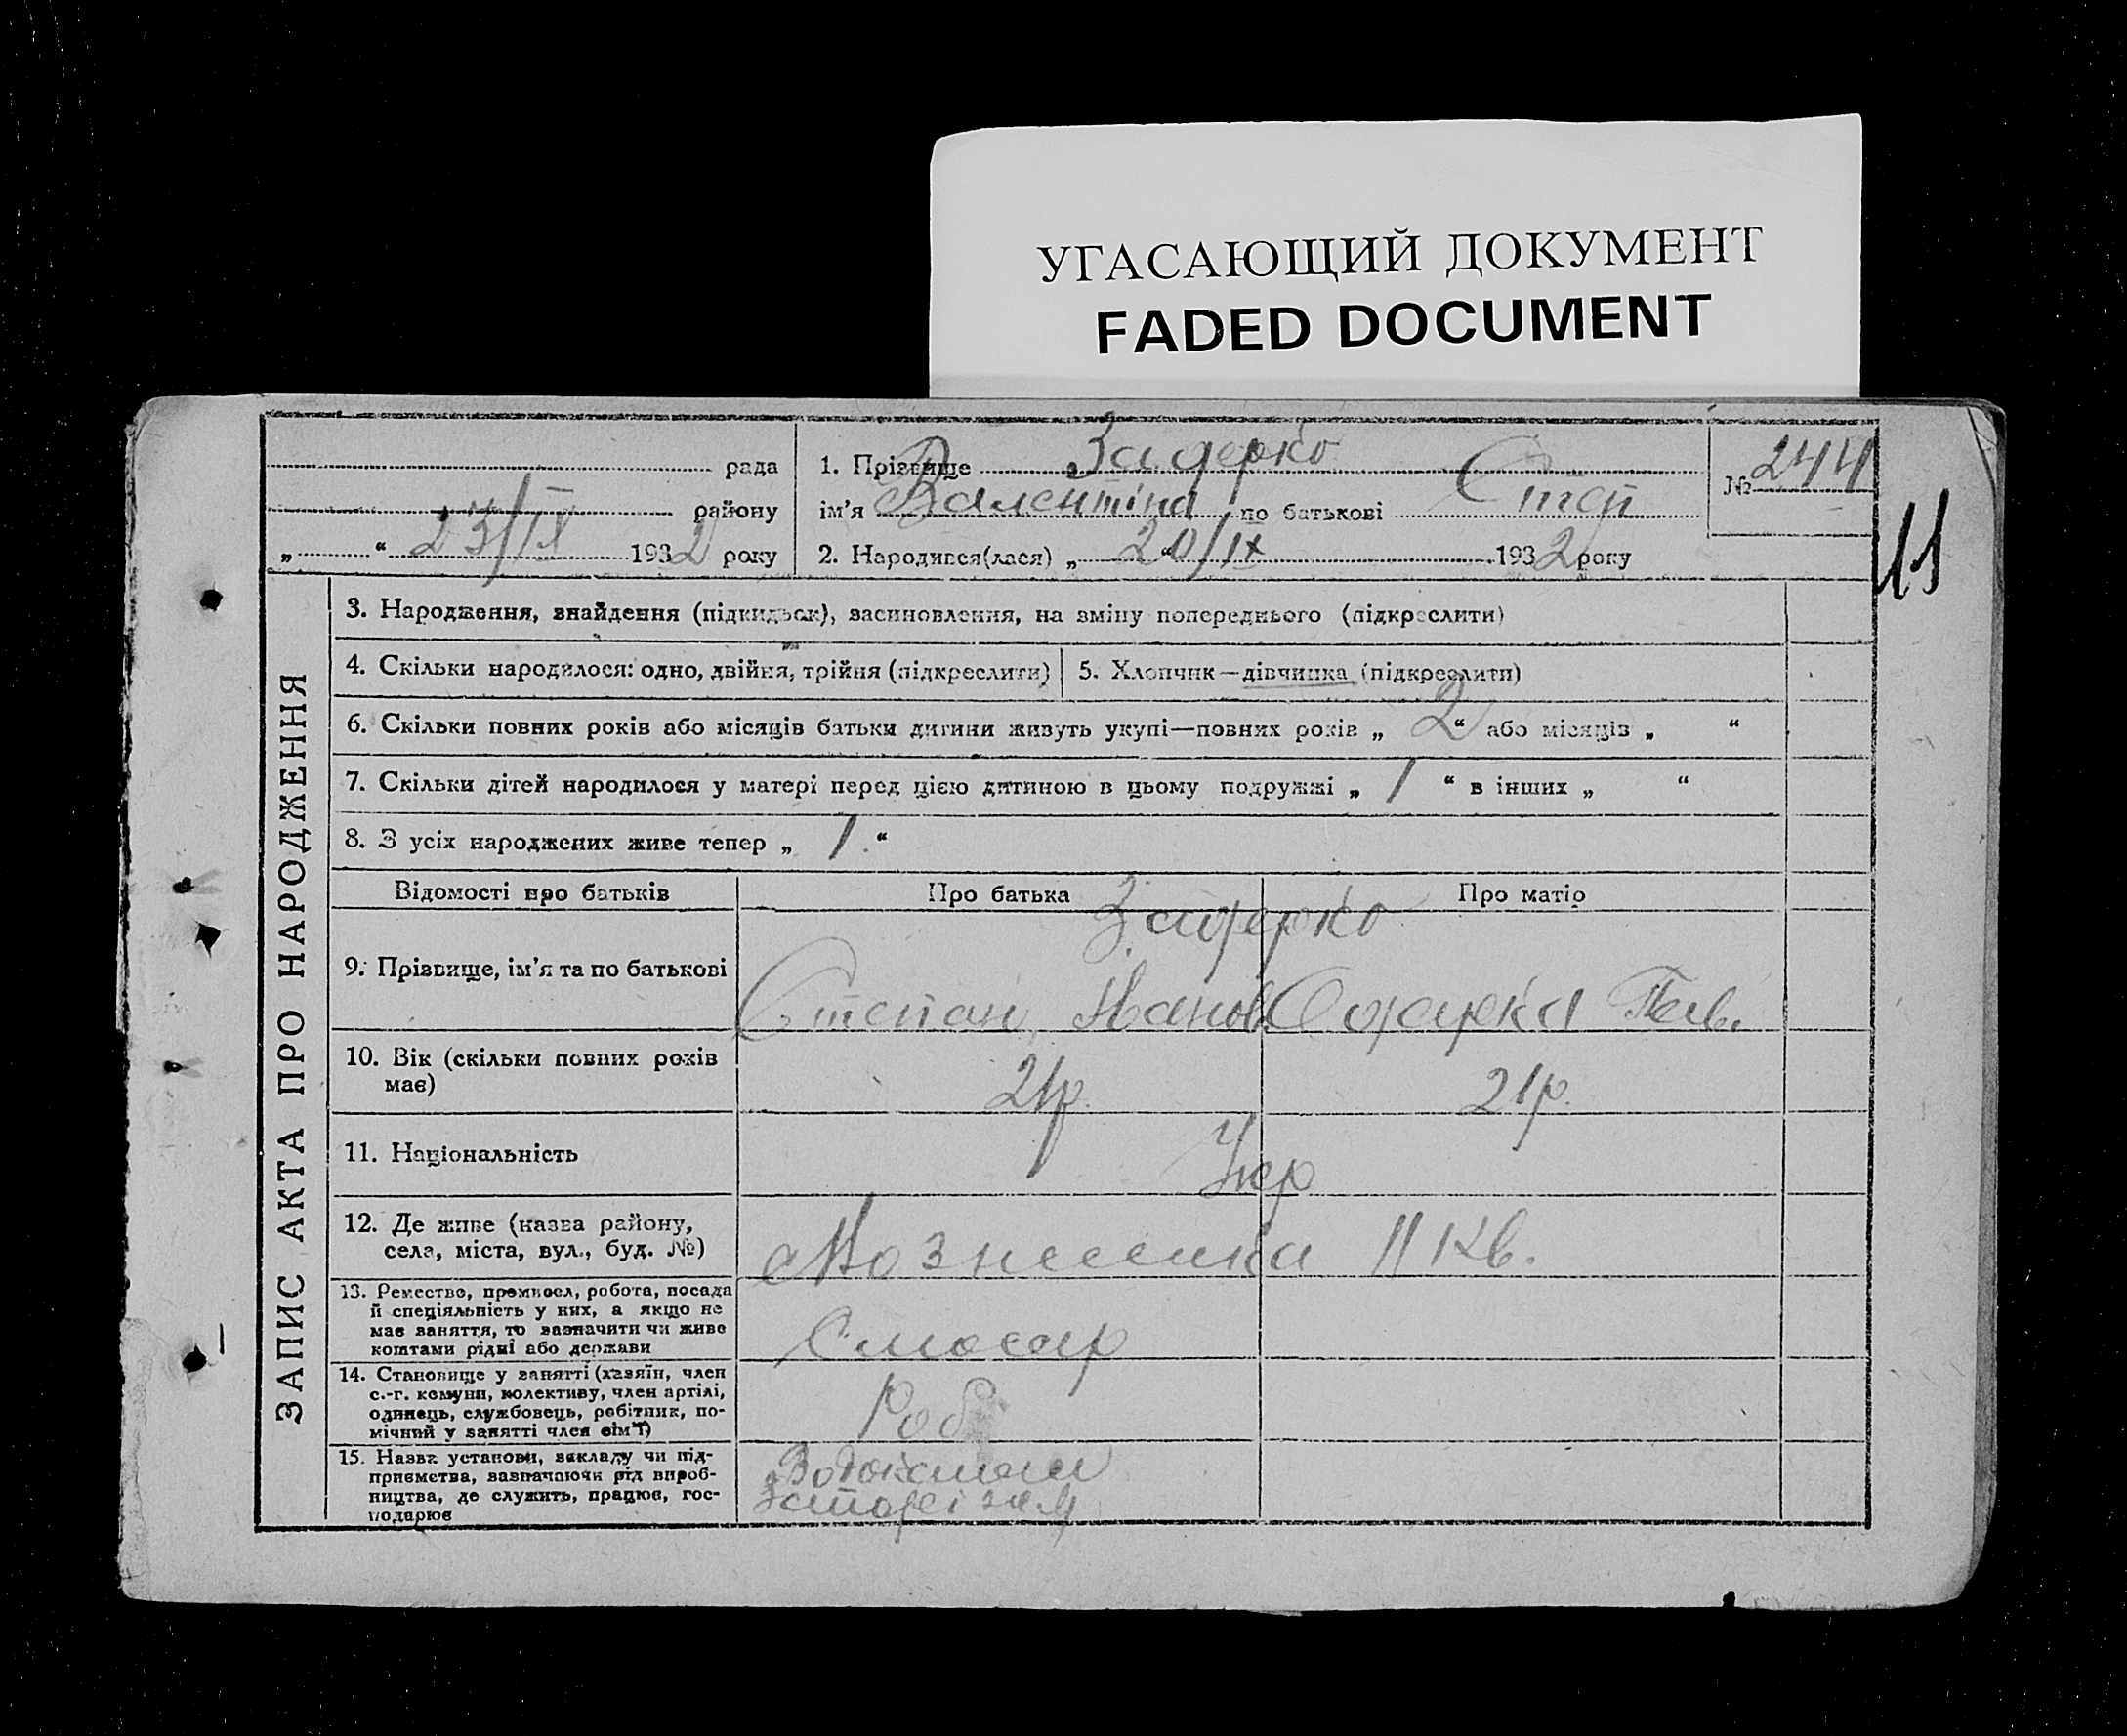 УГАСАЮЩИЙ ДОКУМЕНТ
FADED DOCUMENT
рада
району
„ “ 23/IX 1932 року
1. Прізвище Задерко
ім’я Валентіна по батькові Степ
2. Народився(лася) „ 20/IX “ 1932 року
№ 244
ЗАПИС АКТА ПРО НАРОДЖЕННЯ
3. Народження, знайдення (підкидьок), засиновлення, на зміну попереднього (підкреслити)
4. Скільки народилося: одно, двійня, трійня (підкреслити)
5. Хлопчик—дівчинка (підкреслити)
6. Скільки повних років або місяців батьки дитини живуть укупі—повних років „ 2 “ або місяців „ “
7. Скільки дітей народилося у матері перед цією дитиною в цьому подружжі „ 1 “ в інших „ “
8. З усіх народжених живе тепер „ 1 “
Відомості про батьків
Про батька
Про матір
9. Прізвище, ім’я та по батькові
Задерко
Степан Іванов
Одарка Пав.
10. Вік (скільки повних років
має)
21р.
21р.
11. Національність
Укр
12. Де живе (назва району,
села, міста, вул., буд. №)
Вознесенка II Кв.
13. Ремество, промисел, робота, посада
й спеціяльність у них, а якщо не
має заняття, то зазначити чи живе
коштами рідні або держави
Слюсар
14. Становище у занятті (хазяїн, член
с.-г. комуни, колективу, член артілі,
одинець, службовець, робітник, по-
мічний у занятті член сім’ї)
Роб
15. Назва установи, закладу чи під-
приємства, зазначаючи рід вироб-
ництва, де служить, працює, гос-
подарює